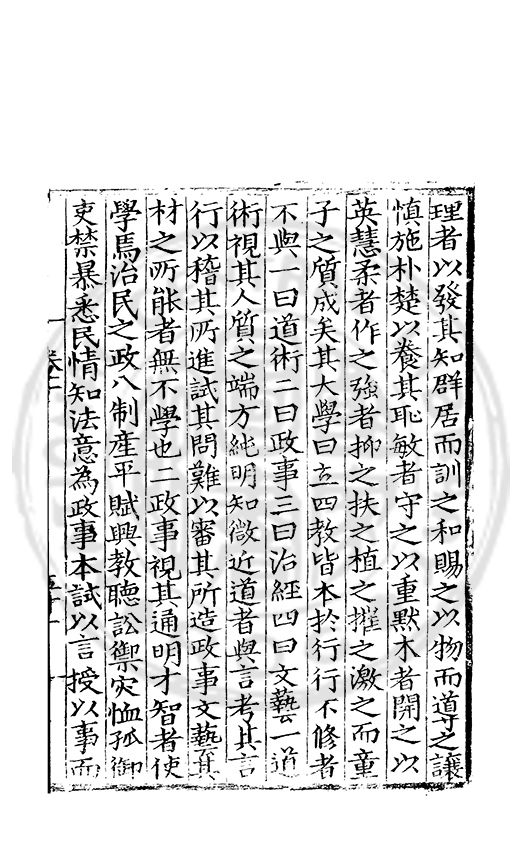 理者以發其知群居而訓之和賜之以物而導之讓
慎施朴楚以養其恥敏者守之以重默木者開之以
英慧柔者作之強者抑之扶之植之摧之激之而童
子之質成矣其大學曰立四教皆本於行行不修者
不與一曰道術二曰政事三曰治經四曰文藝一道
術視其人質之端方純明知微近道者與言考其言
行以稽其所進試其問難以審其所造政事文藝其
材之所能者無不學也二政事視其通明才智者使
學焉治民之政八制產平賦興教聽訟禦灾恤孤御
吏禁暴悉民情知法意為政事本試以言授以事而
卷二